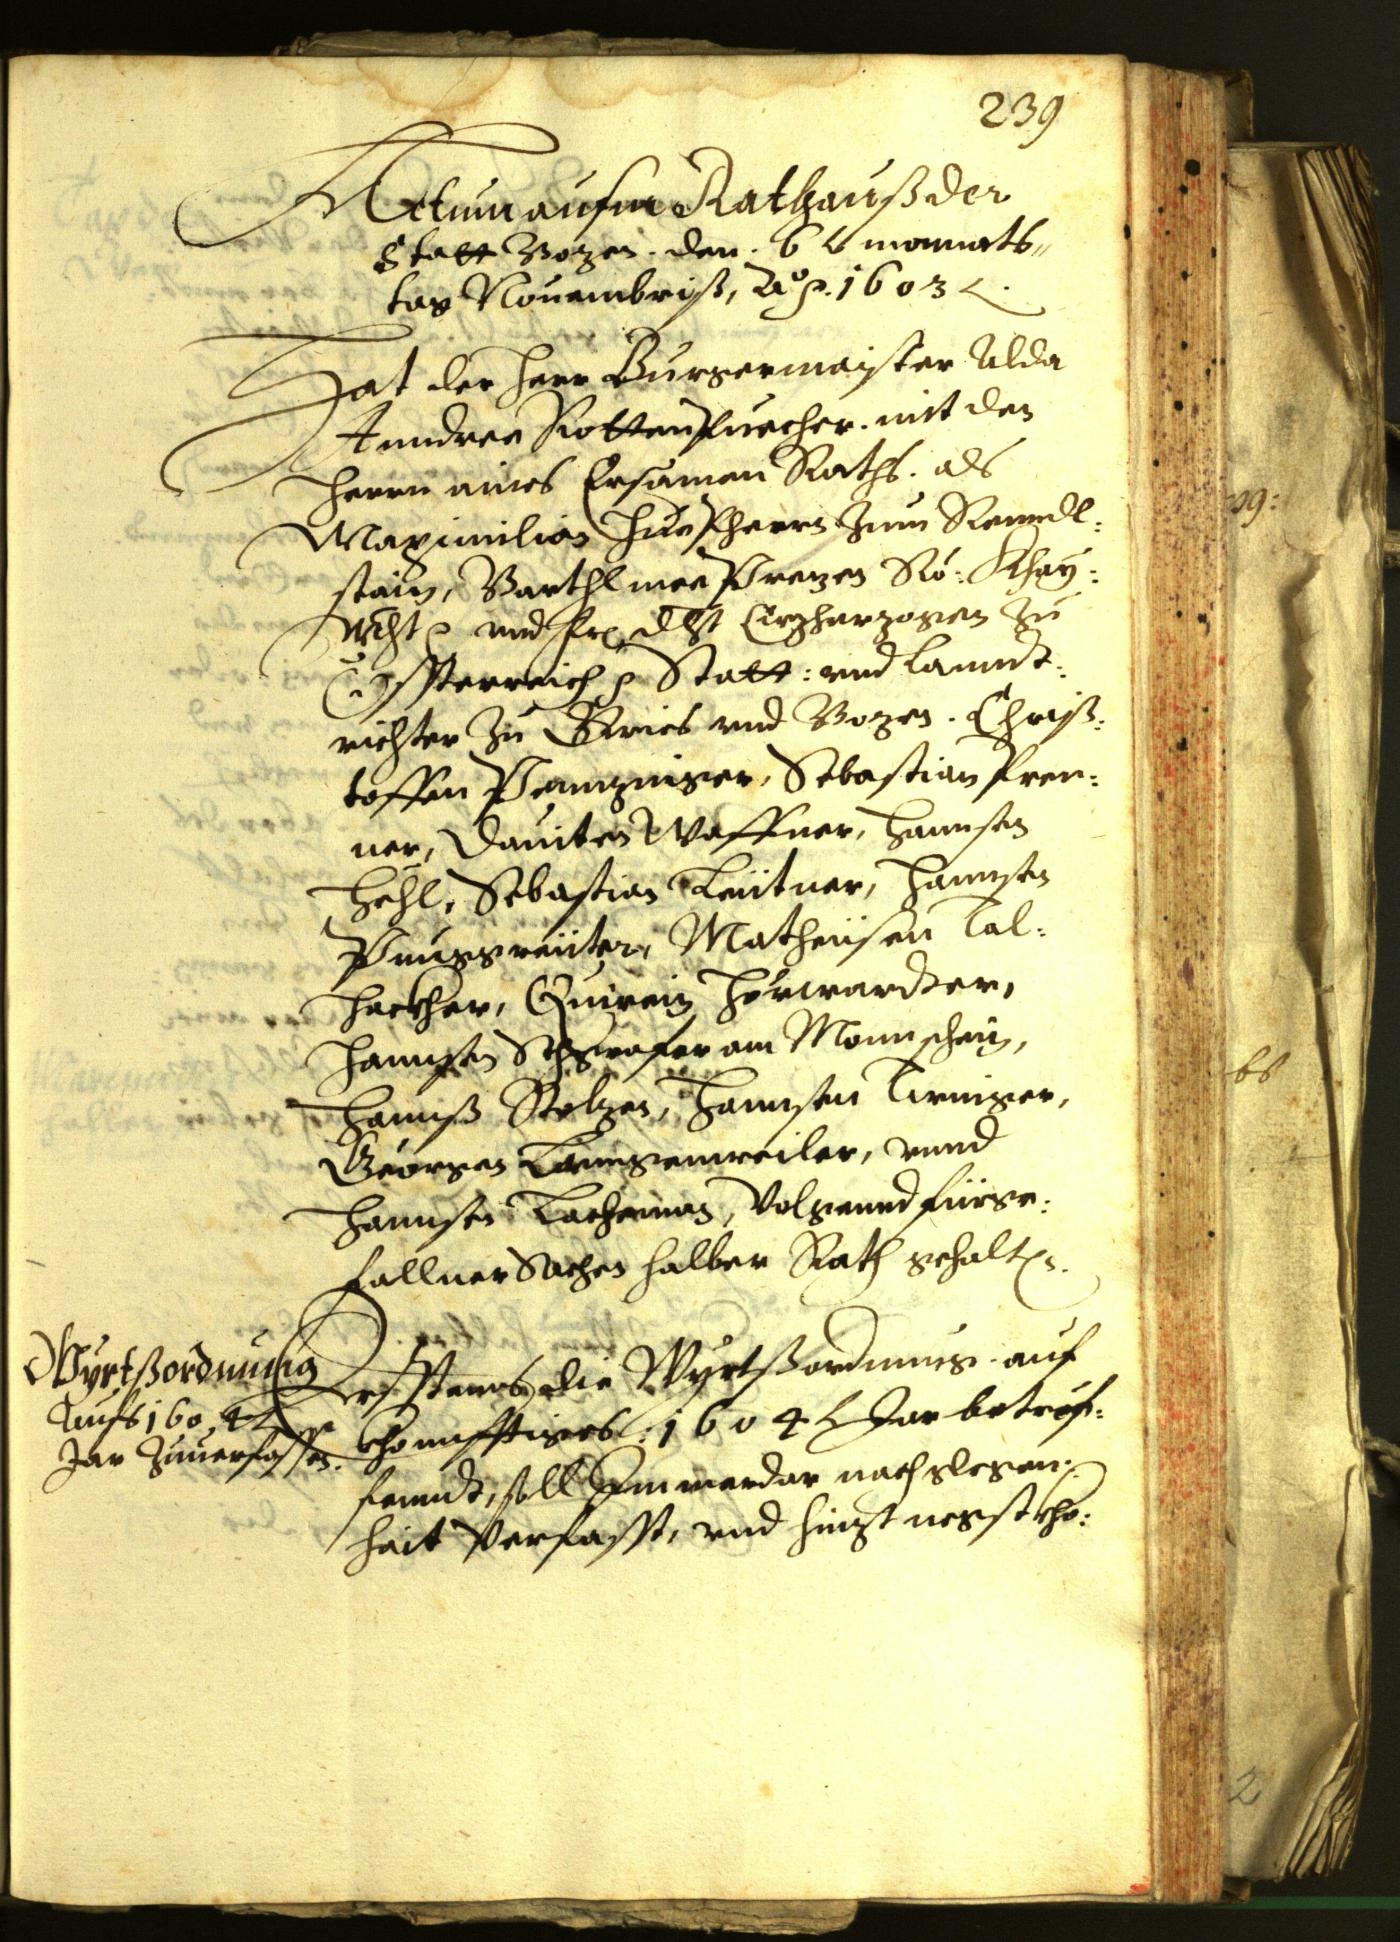 239
Actum aufm Rathauß der
Statt Bozen. den. 6 ten monnats„
tag Nouembriß, Aõ. 1603.
Hat der Herr Burgermaister Alda
Anndree Rottenpuecher. mit den
Herrn aines Ersamen Raths. als
Maximilian Hueb herrn zum Renndl:
stain, Barthlmee Prezen Rö: Khay:
Mtt. vnd Frl. Dlt Erzherzogen zu
Össterreich Statt: vnd Lanndt:
richter zu Gries vnd Bozen. Chris:
toffen Pennzinger, Sebastian Pren:
ner, Dauiten Waffner, Hannsen
Hehl, Sebastian Leütner, Hannsen
Pruggreüter, Matheüsen Tal:
hackher, Quirein Hörwardter,
Hannsen Schgrafer am Monnschein,
Hannß Stelzen, Hannsen Tirniger,
Georgen Langenweiler, vnnd
Hannsen Lacheman, Volgennd fürge:
fallner Sachen halber Rath gehalten.
Wyrtßordnung
Aufs 1604
Jar Zuuerfassen.
Erstens, die Wyrtßordnung. auf
khonnfftiges: 1604 Jar betref:
fenndt, soll Immerdar nach glegen:
hait Verfasst, vnd hinzt negstkho:
bs
2